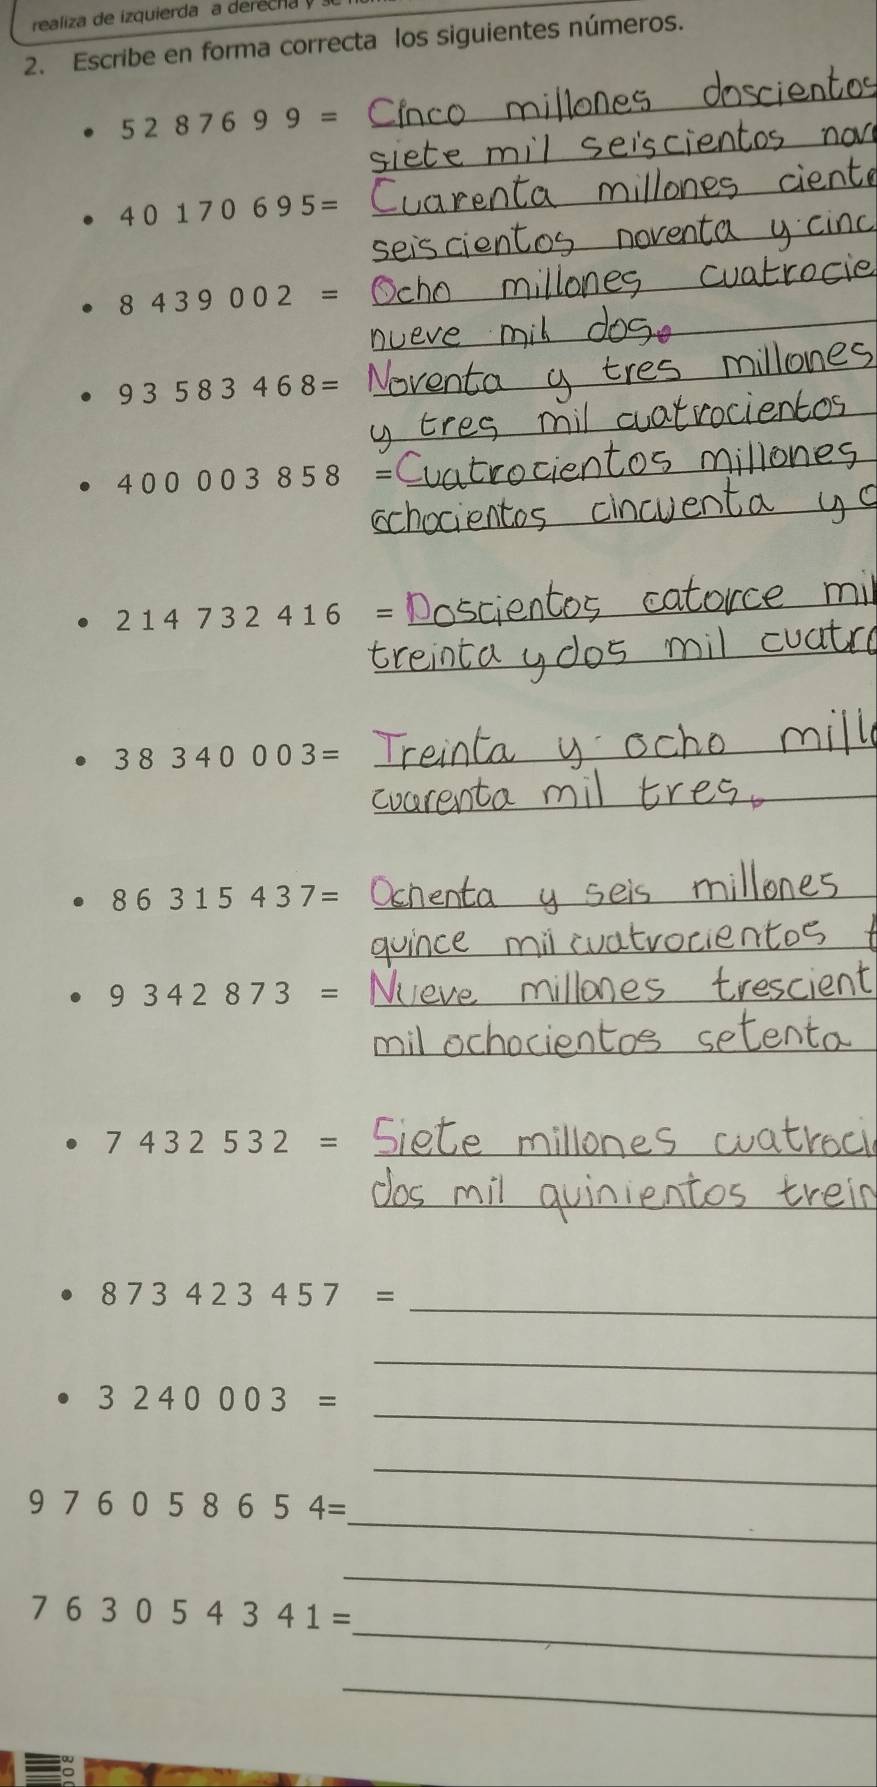 realiza de izquierda a derecha y
2. Escribe en forma correcta los siguientes números.
• 5 2 8 7 6 9 9 = Cinco millones doscientos
siete mil seiscientos nov
• 4 0 1 7 0 6 9 5 = Cuarenta millones ciento
seiscientos noventa y cinc
• 8 4 3 9 0 0 2 = Ocho millones cuatrocie
nueve mil dos.
• 9 3 5 8 3 4 6 8 = Noventa y tres millones
y tres mil cuatrocientos
• 4 0 0 0 0 3 8 5 8 = Cuatrocientos millones
ochocientos cincuenta y o
• 2 1 4 7 3 2 4 1 6 = Doscientos catorce mil
treinta y dos mil cuatro
• 3 8 3 4 0 0 0 3 = Treinta y ocho millo
cuarenta mil tres.
• 8 6 3 1 5 4 3 7 = Ochenta y seis millones
quince mil cuatrocientos t
• 9 3 4 2 8 7 3 = Nueve millones trescient
mil ochocientos setenta
• 7 4 3 2 5 3 2 = Siete millones cuatroci
dos mil quinientos trein
• 8 7 3 4 2 3 4 5 7 =
• 3 2 4 0 0 0 3 =
9 7 6 0 5 8 6 5 4 =
7 6 3 0 5 4 3 4 1 =
008